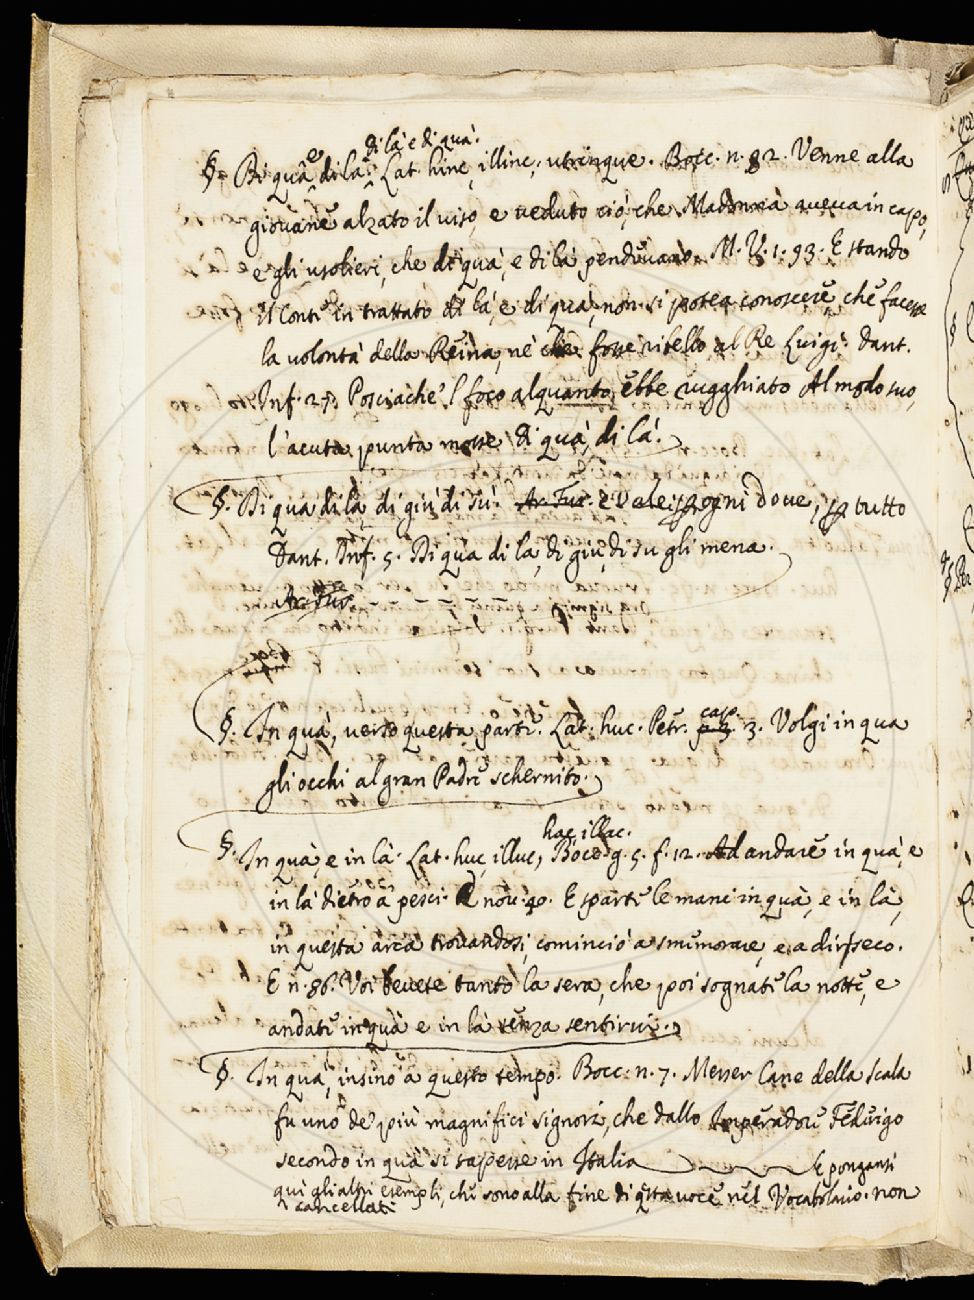 di là e di quà.
§. Di quà e di là. Lat. hinc, illinc, utrinque. Bocc. n. 82. Venne alla
giovane alzato il viso, e veduto ciò, che Madonna aveva in capo,
e gli usolieri, che di quà, e di là pendevano. M. V. 1. 93. E stando
il Conte in trattato di là, e di quà, non si potea conoscere, che facesse
la volontà della Reina, nè che fosse ribello al Re Luigi. Dant.
Inf. 27. Posciachè 'l foco alquanto ebbe rugghiato Al modo suo,
l'acuta punta mosse di quà, di là.
§. Di qua di là di giù di sù. Ar. Fur. e Vale per ogni dove, per tutto
Dant. Inf. 5. Di qua di là, di giù, di su gli mena.
Ar. Fur.
§. In quà, verso questa parte. Lat. huc. Petr. cap. 3. Volgi in qua
gli occhi al gran Padre schernito.
hac illac.
§. In quà, e in là. Lat. huc, illuc, Bocc. g. 5. f. 12. Ad andare in quà, e
in là dietro a pesci. E nov. 40. E sparte le mani in quà, e in là,
in questa arca trovandosi, cominciò a smemorare, e a dir seco.
E n. 86. Voi bevete tanto la sera, che poi sognate la notte, e
andate in quà e in là senza sentirvi.
§. In quà, insino a questo tempo. Bocc. n. 7. Messer Cane della Scala
fu uno de' più magnifici signori, che dallo Imperadore Federigo
secondo in quà si sapesse in Italia E pongansi
quì gli altri esempli, che sono alla fine di qsta voce nel Vocabolario. non
cancellati